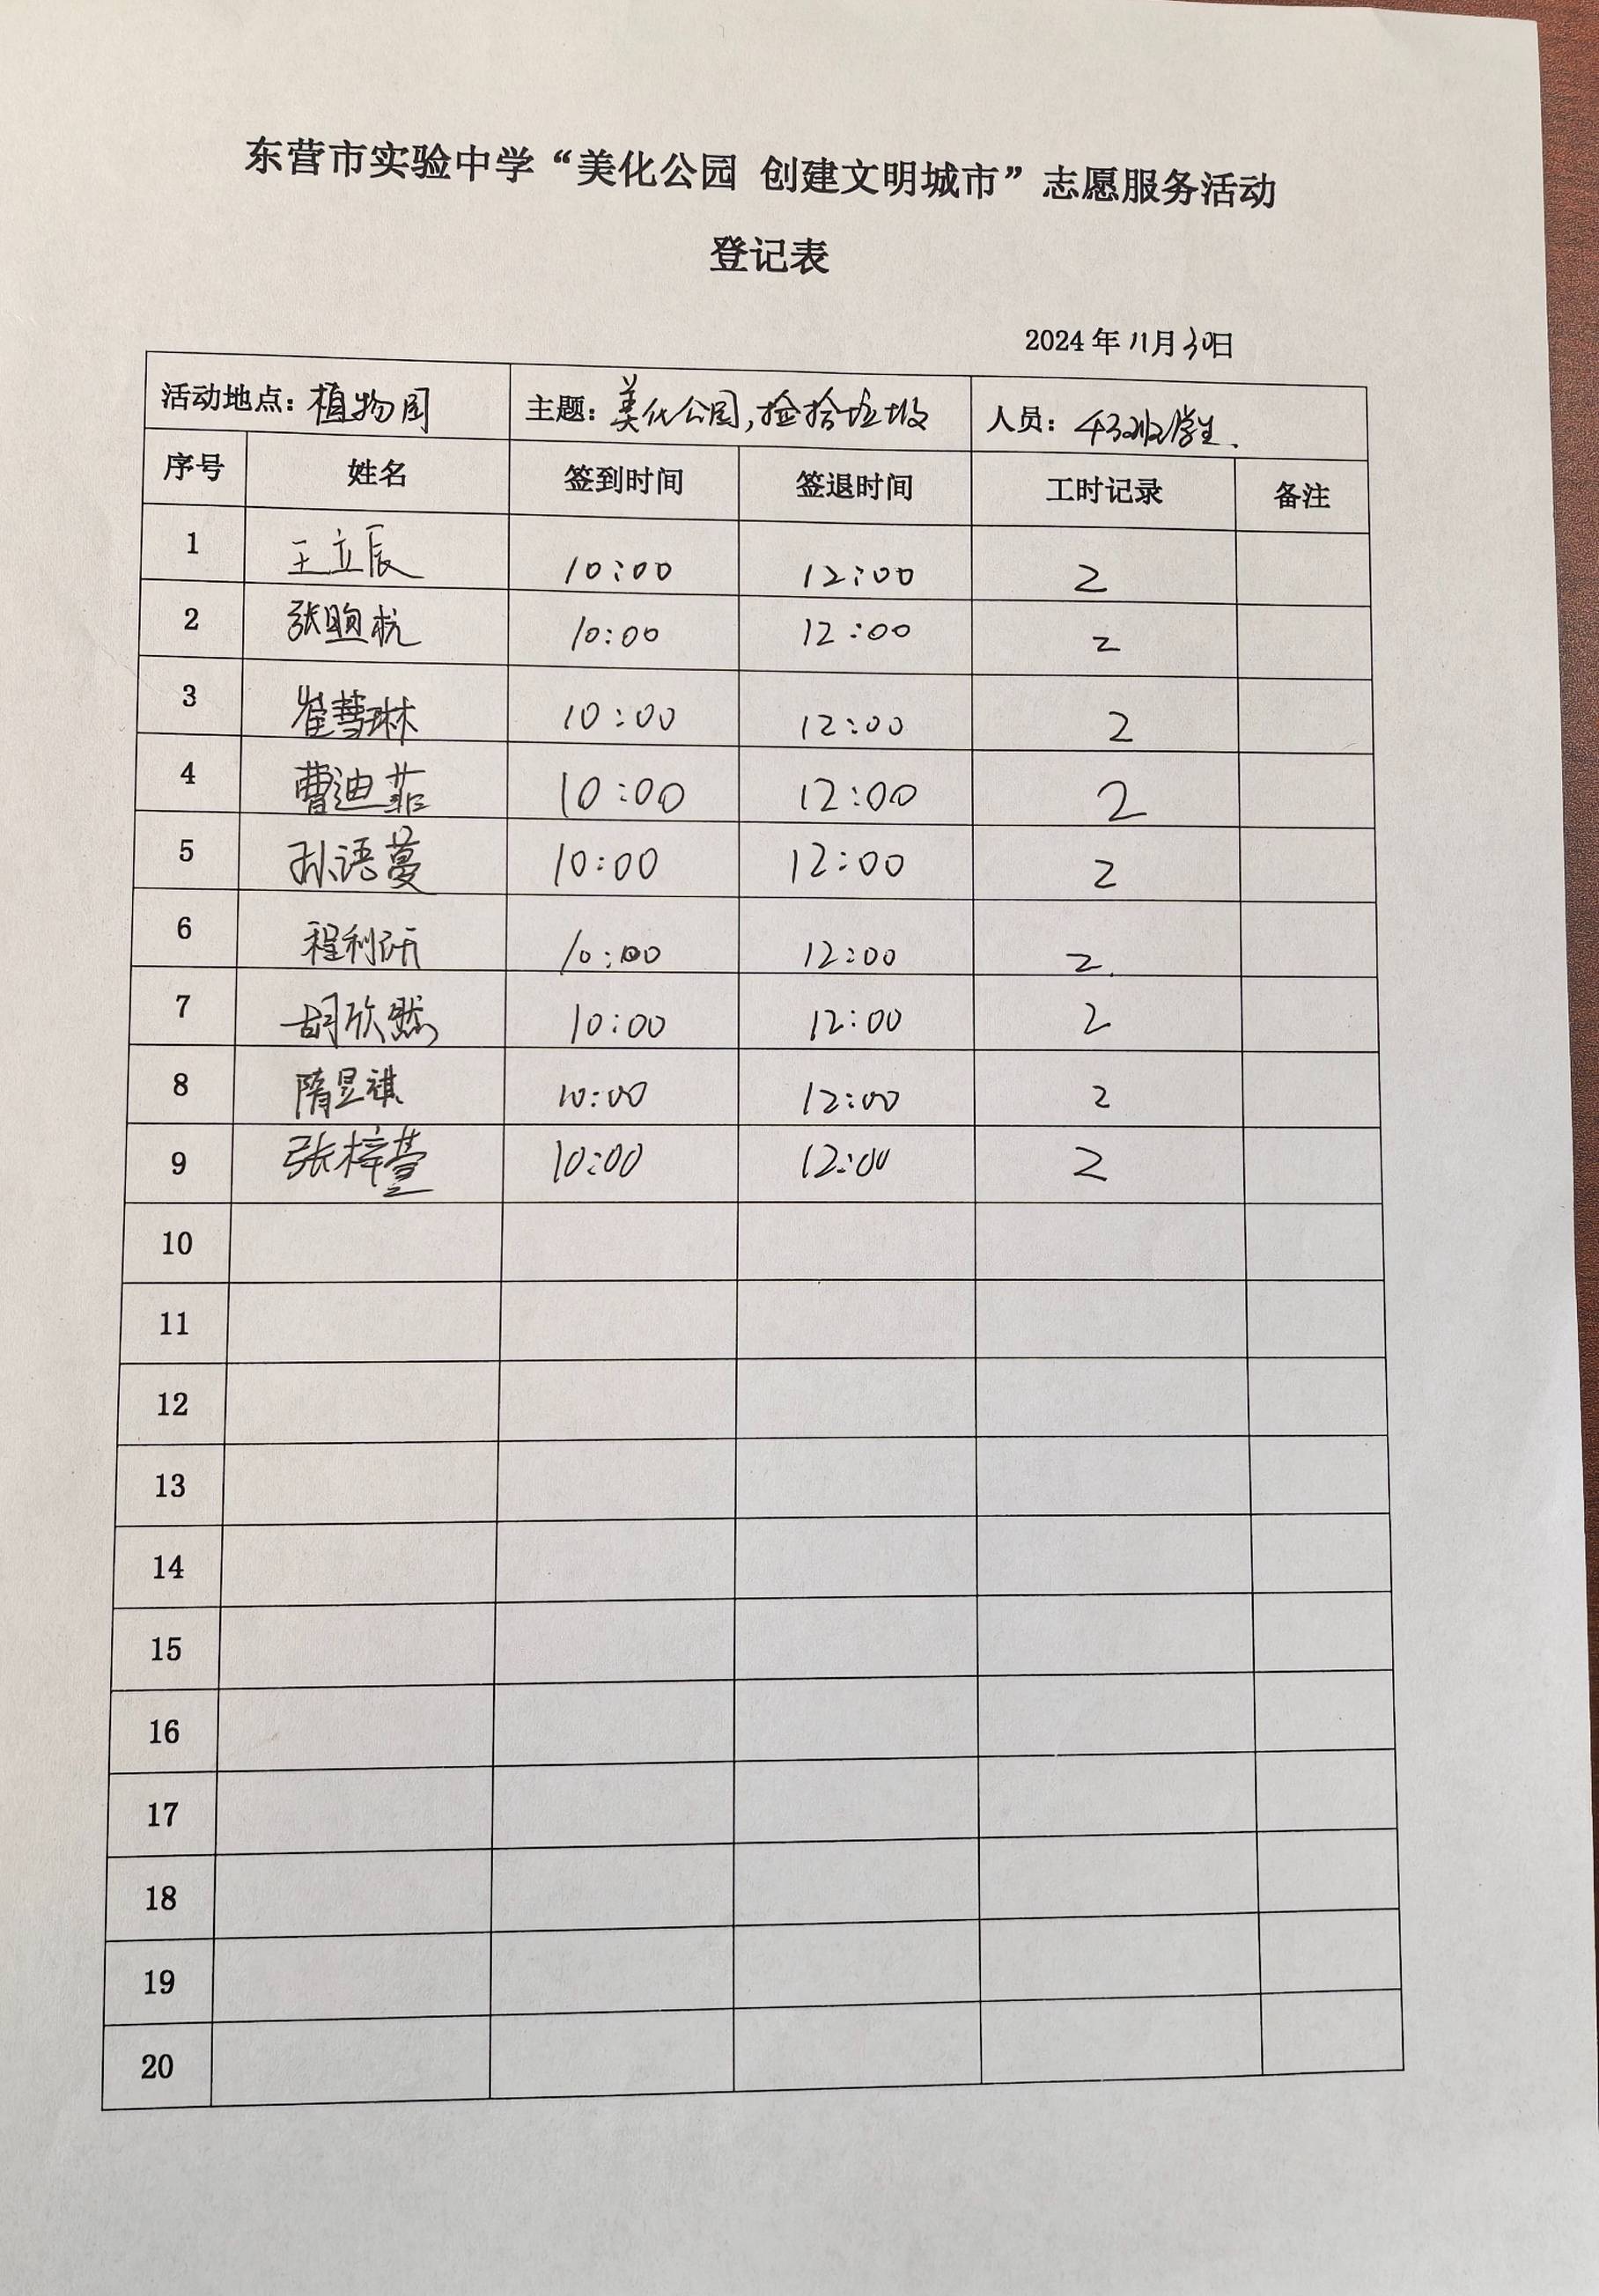 东营市实验中学“美化公园 创建文明城市”志愿服务活动
登记表
2024年11月30日
活动地点：植物园 主题：美化公园，捡拾垃圾 人员：43班学生.
序号 姓名 签到时间 签退时间 工时记录 备注
1 王立辰 10:00 12:00 2
2 张煦杭 10:00 12:00 2
3 崔慧琳 10:00 12:00 2
4 曹迪菲 10:00 12:00 2
5 孙语蔓 10:00 12:00 2
6 程利研 10:00 12:00 2.
7 胡欣然 10:00 12:00 2
8 隋昱祺 10:00 12:00 2
9 张梓萱 10:00 12:00 2
10
11
12
13
14
15
16
17
18
19
20